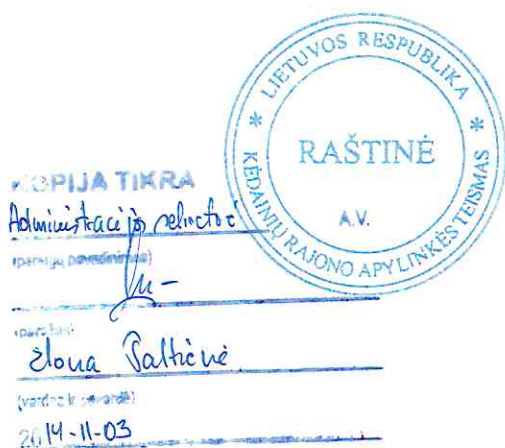 LIETUVOS RESPUBLIKA
KĖDAINIŲ RAJONO APYLINKĖS TEISMAS
RAŠTINĖ
A.V.
KOPIJA TIKRA
Administracijos
(pareigų pavadinimas)
(parašas)
(vardas ir pavardė)
2014-11-03